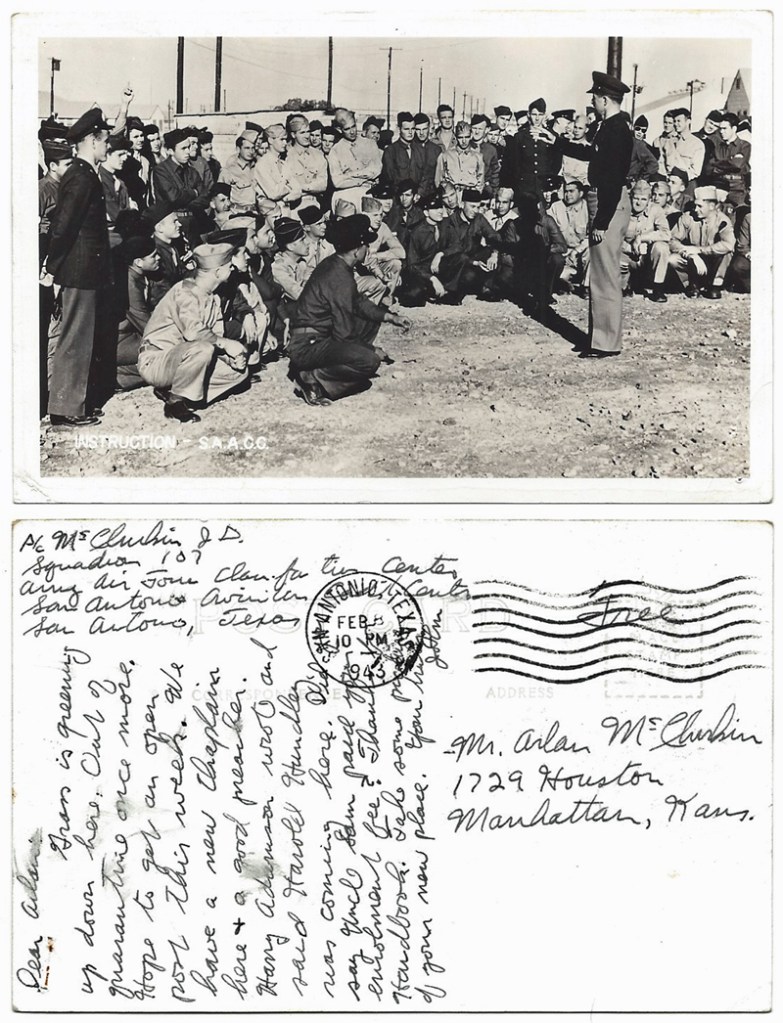 INSTRUCTION - S.A.A.C.C.
A/c McClurkin J D.
Squadron 107
Army Air Force Class for tion Center
San Antonio Aviation Cadet Center
San Antonio, Texas
POST CARD
SAN ANTONIO, TEXAS
FEB 8
10 PM
1943
Free
PLACE
STAMP
HERE
CORRESPONDENCE
ADDRESS
Mr. Arlan McClurkin
1729 Houston
Manhattan, Kans.
Dear Arlan:
Grass is greening
up down here. Out of
quarantine once more.
Hope to get an open
post this week. We
have a new Chaplain
here & a good preacher.
Harry Adamson wrote and
said Harold Hundley
was coming here. Did I
say Uncle Sam paid your
enrolment fee? Thanks
Handbook. Take some pictures
of your new place. You bet
John